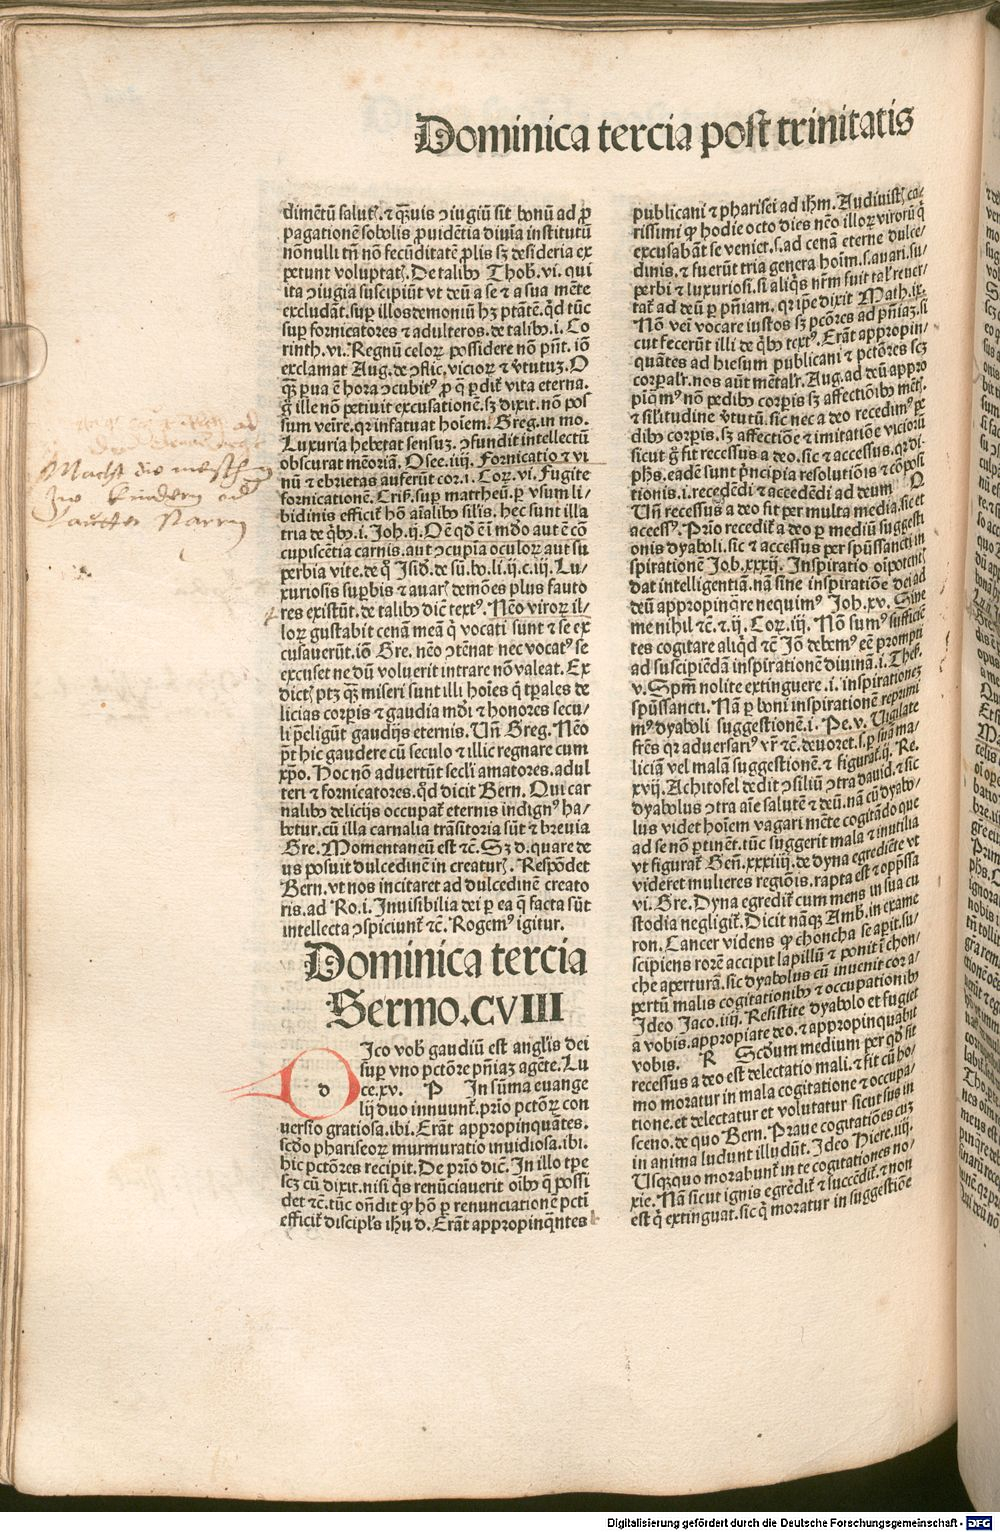 Dominica tercia post trinitatis
dimentū salutꝭ. ⁊ q̄uis ↄiugiū sit bonū ad ꝓ
pagationē sobolis ꝓuidētia diuīa institutū
nōnulli tn̄ nō fecūditatē ꝓlis sꝫ desideria ex
petunt voluptatꝭ. De talibꝰ Thob. vi. qui
ita ↄiugia suscipiūt vt deū a se ⁊ a sua mēte
excludāt. suꝑ illos demoniū hꝫ ptātē. q̇d tūc
suꝑ fornicatores ⁊ adulteros. de talibꝰ. i. Co
rinth. vi. Regnū celoꝝ possidere nō pn̄t. iō
exclamat Aug. de ↄflic. vicioꝝ ⁊ v̓tutuꝫ. O
q̄ꝫ ꝑua ē hora ↄcubitꝰ ꝓ q̄ ꝑdit̄ vita eterna.
g̊ ille nō petiuit excusationē. sꝫ dixit. nō pos
sum veīre. qꝛ infatuat hoīem. Greg. in mo.
Luxuria hebetat sensuꝫ. ↄfundit intellectū
obscurat mēoriā. Osee. iiij. Fornicatio ⁊ vi
nū ⁊ ebrietas auferūt cor. i. Coꝝ. vi. Fugite
fornicationē. Cris. suꝑ mattheū. ꝑ vsum li
bidinis efficit̄ hō aīalibꝰ silis. hec sunt illa
tria de q̇bꝰ. i. Joh. ij. Oē qd̄ ē ī mdo aut ē cō
cupiscētia carnis. aut ↄcupīa oculoꝝ aut su
perbia vite. de q̄ Jsid. de sū. bo. li. ij. c. iij. Lu
xuriosis suꝑbis ⁊ auarꝭ demōes plus fauto
res existūt. de talibꝰ dic̄ textꝰ. Nēo viroꝝ il-
loꝝ gustabit cenā meā q̇ vocati sunt ⁊ se ex
cusauerūt. iō Gre. nēo ↄtēnat nec vocatꝰ se
excuset ne dū voluerit intrare nō valeat. Ex
dictꝭ ptꝫ q̄ꝫ miseri sunt illi hoīes q̇ tꝑales de
licias corꝑis ⁊ gaudia mdi ⁊ honores secu-
li p̄eligūt gaudijs eternis. Vn̄ Greg. Nēo
pt̄ hic gaudere cū seculo ⁊ illic regnare cum
xp̄o. Hoc nō aduertūt secl̓i amatores. adul
teri ⁊ fornicatores. q̇d dicit Bern. Qui car
nalibꝰ delicijs occupat̄ eternis indignꝰ ha-
betur. cū illa carnalia trāsitoria sūt ⁊ breuia
Gre. Momentaneū est ⁊c̄. Sꝫ d. quare de
us posuit dulcedinē in creaturꝭ. Respōdet
Bern. vt nos incitaret ad dulcedinē creato
ris. ad Ro. i. Inuisibilia dei ꝑ ea q̄ facta sūt
intellecta ↄspiciunt̄ ⁊c̄. Rogemꝰ igitur.
Dominica tercia
Sermo. CVIII
d
Ico vob̄ gaudiū est angl̓is dei
suꝑ vno pctōre pn̄iaꝫ agēte. Lu
ce. xv. P In sūma euange
lij duo innuunt̄. prīo pctōꝝ con
uersio gratiosa. ibi. Erāt appropinquātes.
scd̓o phariseoꝝ murmuratio inuidiosa. ibi.
hic pctōres recipit. De prīo dic̄. In illo tꝑe
scꝫ cū dixit. nisi q̇s renūciauerit oībꝰ q̄ possi
det ⁊c̄. tūc on̄dit ꝙ hō ꝑ renunciationē pcti
efficit̄ discipl̓s ihū d. Erāt appropinq̄ntes
publicani ⁊ pharisei ad ihm̄. Audiuistꝭ ca-
rissimi ꝙ hodie octo dies nēo illoꝝ viroꝝ q̇
excusabāt se veniet. s. ad cenā eterne dulce-
dinis. ⁊ fuerūt tria genera hoīm. s. auari. su-
perbi ⁊ luxuriosi. si aliq̇s nr̄m fuit tal̓ reuer-
tat̄ ad deū ꝑ pn̄iam. qꝛ ip̄e dixit Math. ix.
Nō veni vocare iustos sꝫ pctōres ad pn̄iaꝫ. si
cut fecerūt illi de q̇bꝰ textꝰ. Erāt appropin-
quātes ad hiesum publicani ⁊ pctōres scꝫ
corꝑalr̄. nos aūt mētalr̄. Aug. ad deū appro
piq̄mꝰ nō pedibꝰ corꝑis sꝫ affectiōibꝰ mētꝭ.
⁊ sil̓itudine v̓tutū. sic nec a deo recedimꝰ pe
dibꝰ corꝑis. sꝫ affectiōe ⁊ imitatiōe vicioꝝ
sicut g̊ fit recessus a deo. sic ⁊ accessus. qꝛ di-
phs̄. eadē sunt p̓ncipia resolutiōis ⁊ cōposi
tionis. i. recedēdi ⁊ accedēdi ad deum Q
Vn̄ recessus a deo fit per multa media. sic et
accessꝰ. Prīo recedit̄ a deo ꝑ mediū suggesti
onis dyaboli. sic ⁊ accessus per spūssancti in
spirationē Job. xxxij. Inspiratio oīpotentꝭ
dat intelligentiā. nā sine inspiratiōe dei ad
deū appropinq̄re nequimꝰ Joh. xv. Sine
me nihil ⁊c̄. ⁊. ij. Coꝝ. iij. Nō sumꝰ sufficiē
tes cogitare aliq̇d ⁊c̄ Jō debemꝰ eē prompti
ad suscipiēdā inspirationē diuinā. i. Thes̄.
v. Spm̄ nolite extinguere. i. inspirationeꝫ
spūssancti. Nā ꝑ boni inspirationē reprimi
mꝰ dyaboli suggestionē. i. Pe. v. Vigilate
frēs qꝛ aduersariꝰ vr̄ ⁊c̄. deuoret. s. ꝑ suā ma-
liciā vel malā suggestionē. ⁊ figurat̄. ij. Re.
xvij. Achitofel dedit ↄsiliū ↄtra dauid. ⁊ sic
dyabolus ↄtra aīe salutē ⁊ deū. nā cū dyabo-
lus videt hoīem vagari mēte cogitādo que
ad se nō ꝑtinēt. tūc suggerit mala ⁊ inutilia
vt figurat̄ Gen̄. xxxiiij. de dyna egrediēte vt
videret mulieres regiōis. rapta est ⁊ opp̄ssa
vi. Gre. Dyna egredit̄ cum mens in sua cu
stodia negligit̄. Dicit nāqꝫ Amb. in exame
ron. Cancer videns ꝙ choncha se aperit. su-
scipiens rorē accipit lapillū ⁊ ponit ē chon-
che aperturā. sic dyabolus cū inuenit cor a-
pertū malis cogitationibꝰ ⁊ occupationibꝰ
Jdeo Jaco. iiij. Resistite dyabolo et fugiet
a vobis. appropiate deo. ⁊ appropinquabit
vobis. R Scd̄um medium per qd̄ fit
recessus a deo est delectatio mali. ⁊ fit cū ho-
mo moratur in mala cogitatione ⁊ occupa-
tione. et delectatur et volutatur sicut sus in
sceno. de quo Bern. Praue cogitatiōes cuꝫ
in anima ludunt illudūt. Jdeo Hiere. iiij.
Vsq̄quo morabunt̄ in te cogitationes no-
xie. Nā sicut ignis egrēdit̄ ⁊ succēdit̄. ⁊ non
est q̇ extinguat. sic q̇ moratur in suggestiōe
Digitalisierung gefördert durch die Deutsche Forschungsgemeinschaft - DFG